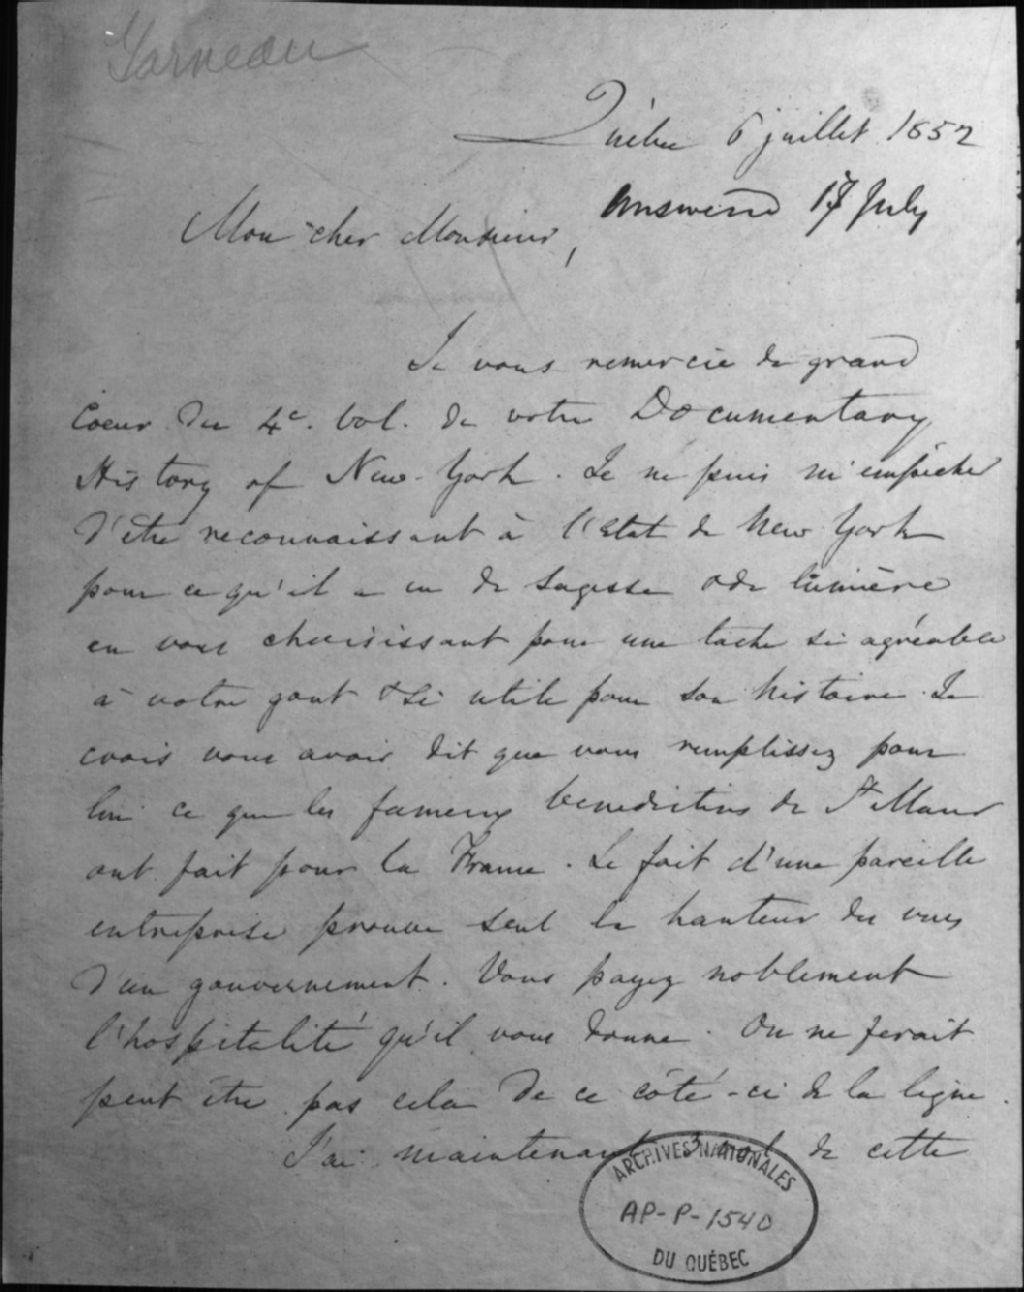 Garneau
Québec 6 juillet 1852
Answered 17 July
Mon cher Monsieur,
Je vous remercie de grand
Coeur du 4e. vol. de votre Documentary
History of New-York. Je ne puis m'empêcher
d'être reconnaissant à l'Etat de New York
pour ce qu'il a eu de sagesse & de lumière
en vous choisissant pour une tache si agréable
à votre gout & si utile pour son histoire. Je
crois vous avoir dit que vous remplissez pour
lui ce que les fameux benedictins de St Maur
ont fait pour la France. Le fait d'une pareille
entreprise prouve seul la hauteur des vues
d'un gouvernement. Vous payez noblement
l'hospitalité qu'il vous donne. On ne ferait
peut être pas cela de ce côté-ci de la ligne.
J'ai maintenant 3 vol. de cette
ARCHIVES NATIONALES
AP-P-1540
DU QUÉBEC